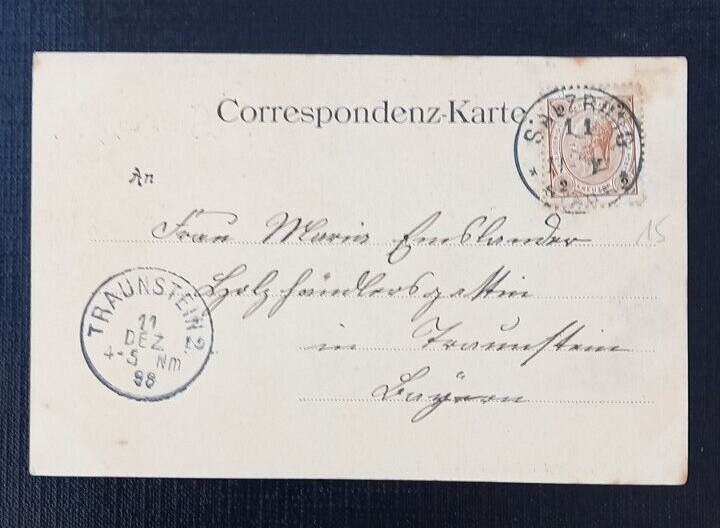 Correspondenz-Karte
SALZBURG
11
2 KREUZER 2
An
Frau Maria Emslander
Holzhändlersgattin
in Traunstein
Bayern
15
TRAUNSTEIN 2.
11
DEZ
4-5 Nm
98